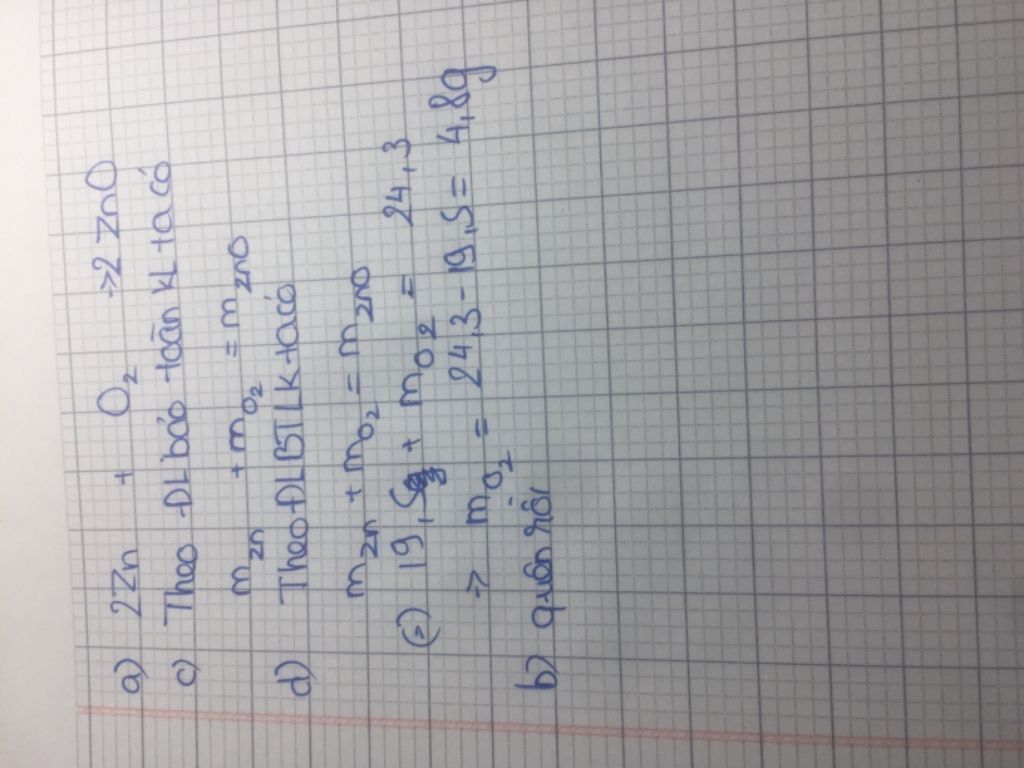 a) 2Zn + O₂ → 2 ZnO
c) Theo ĐL bảo toàn kL ta có
m_Zn + m_O₂ = m_ZnO
d) Theo ĐLBTLK ta có
m_Zn + m_O₂ = m_ZnO
(=) 19,5 + m_O₂ = 24,3
=> m_O₂ = 24,3 - 19,5 = 4,8g
b) quên rồi